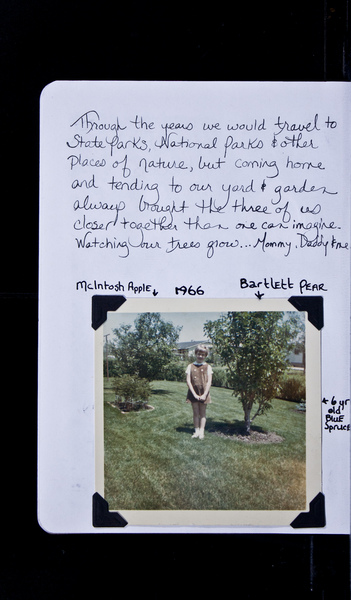 Through the years we would travel to
State Parks, National Parks & other
places of nature, but coming home
and tending to our yard & garden
always brought the three of us
closer together than one can imagine.
Watching our trees grow... Mommy, Daddy & me
McIntosh Apple 1966 Bartlett PEAR
6 yr
old
BluE
Spruce